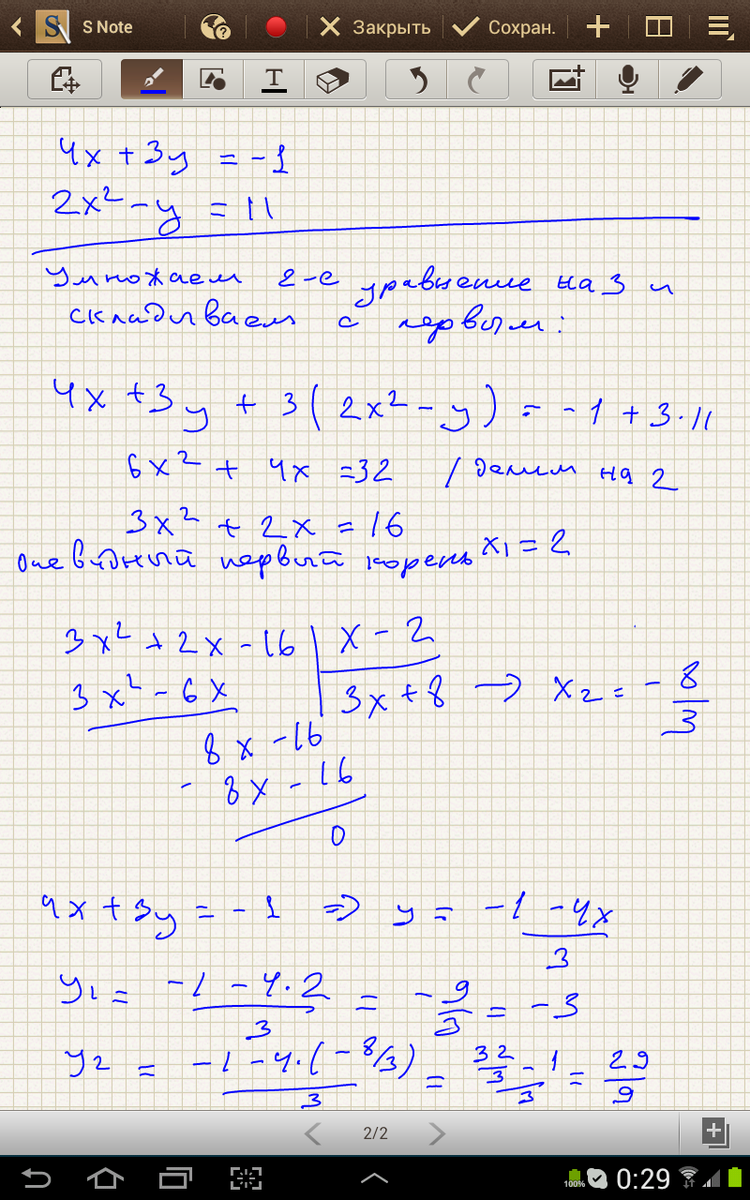 S Note
Закрыть
Сохран.
4x + 3y = -1
2x² - y = 11
Умножаем 2-е уравнение на 3 и
складываем с первым:
4x + 3y + 3(2x² - y) = -1 + 3·11
6x² + 4x = 32 / делим на 2
3x² + 2x = 16
очевидный первый корень x₁ = 2
3x² + 2x - 16 | x - 2
3x² - 6x | 3x + 8 → x₂ = -8/3
8x - 16
- 8x - 16
0
4x + 3y = -1 => y = (-1 - 4x)/3
y₁ = (-1 - 4·2)/3 = -9/3 = -3
y₂ = (-1 - 4·(-8/3))/3 = (32/3 - 1)/3 = 29/9
2/2
100%
0:29